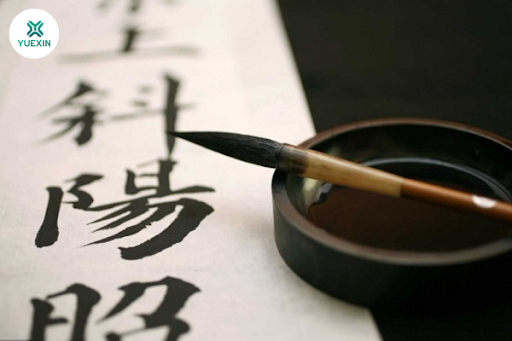 YUEXIN
上
斜
陽
照